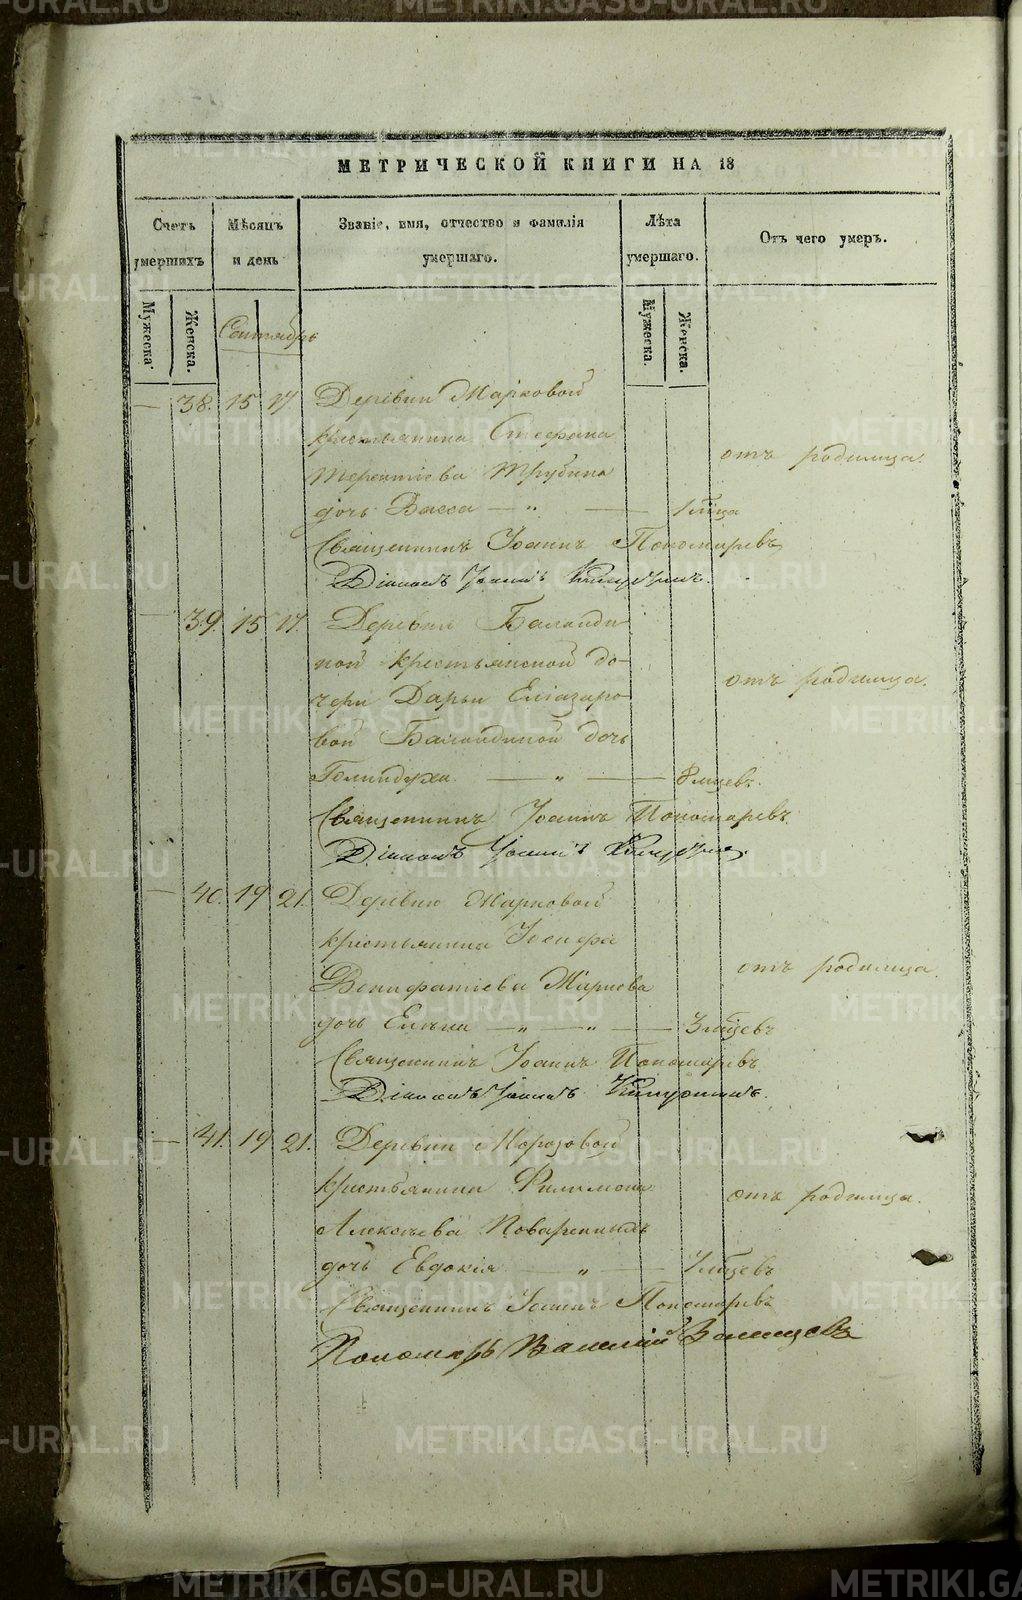 МЕТРИЧЕСКОЙ КНИГИ НА 18
Счетъ умершихъ
Мѣсяцъ и день
Званіе, имя, отчество и фамилія умершаго.
Лѣта умершаго.
Отъ чего умеръ.
Мужеска.
Женска.
Мужеска.
Женска.
Сентябрь
— 38. 15 17 Деревни Марковой
крестьянина Стефана
Терентіева Трубина
отъ родимца.
дочь Васса — " — 1 мѣсца
Священникъ Іоаннъ Пономаревъ
Діаконъ Іоаннъ
— 39. 15 17. Деревни Баланди-
ной крестьянской до-
чери Дарьи Елеазаро-
отъ родимца.
вой Баландиной дочь
Голиндуха — " — 8 мѣсцевъ.
Священникъ Іоаннъ Пономаревъ
Діаконъ Іоаннъ
— 40. 19 21. Деревни Марковой
крестьянина Іосифа
отъ родимца.
Вонифатіева
дочь Елена — " — " — 3 мѣсцевъ
Священникъ Іоаннъ Пономаревъ
Діаконъ Іоаннъ
— 41. 19 21. Деревни Морозовой
крестьянина Филимона
отъ родимца.
Алексѣева
дочь Евдокія — " — 3 мѣсцевъ
Священникъ Іоаннъ Пономаревъ
Пономарь Василій
METRIKI.GASO-URAL.RU